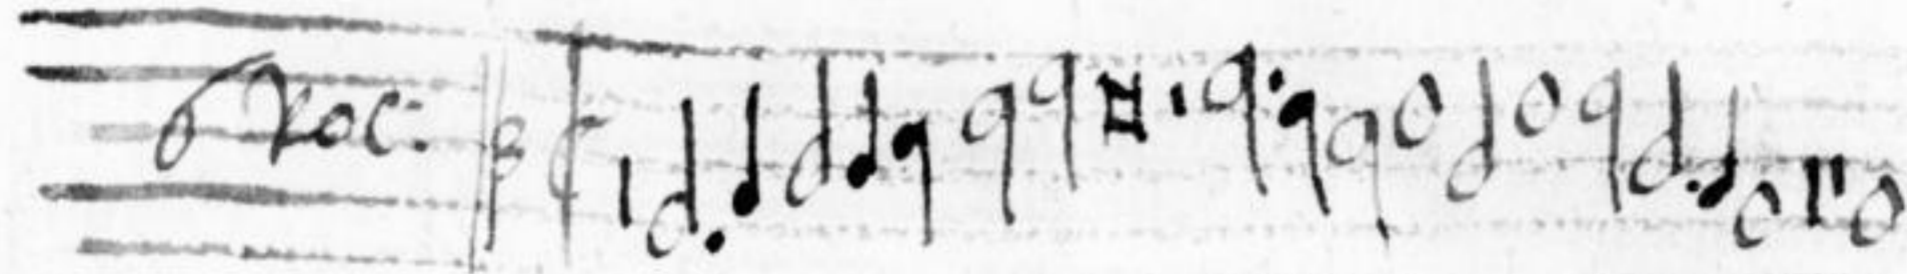 6 Voc: